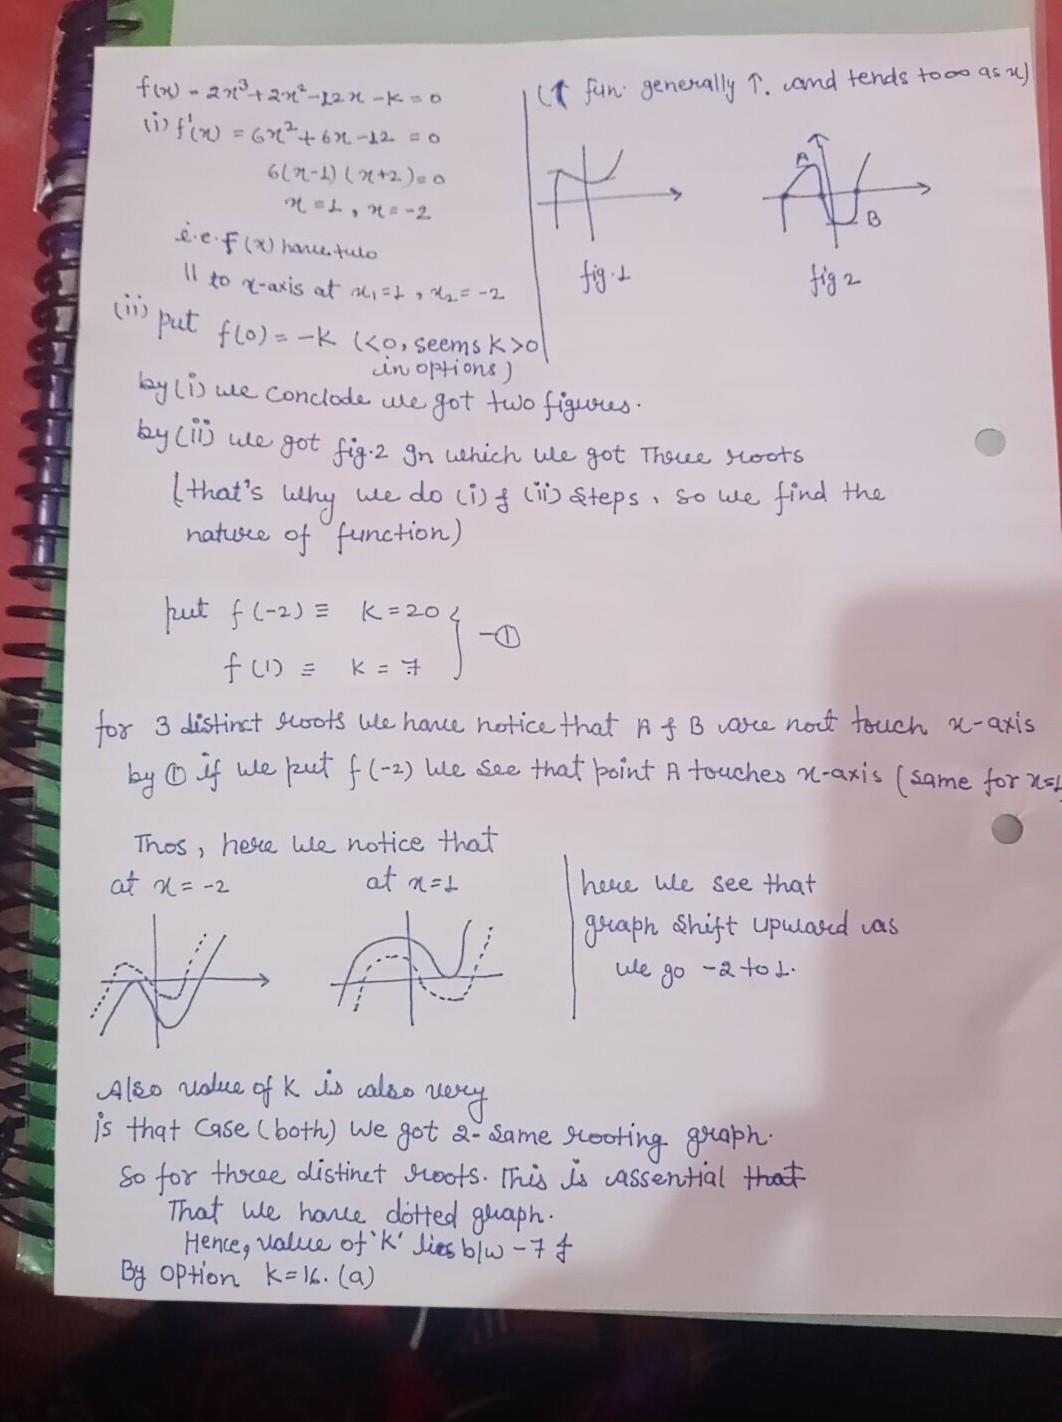 f(x) = 2x³+2x²-12x -k = 0
(i) f'(x) = 6x²+6x-12 = 0
6(x-1)(x+2)=0
x=1, x=-2
i.e. f(x) have two
|| to x-axis at x₁=1, x₂=-2
(ii) put f(0) = -k (<0, seems k>0
in options)
(↑ fun. generally ↑. and tends to ∞ as x)
A
B
fig.1
fig 2
by (i) we conclode we got two figures.
by (ii) we got fig.2 In which we got Three roots
(that's why we do (i) & (ii) steps, so we find the
nature of function)
put f(-2) ≡ k=20
f(1) ≡ k = 7
-①
for 3 distinct roots we have notice that A & B are not touch x-axis
by ① if we put f(-2) we see that point A touches x-axis (same for x=1
Thos, here we notice that
at x=-2
at x=1
here we see that
graph shift upward as
we go -2 to 1.
Also value of k is also very
is that case (both) we got 2-same rooting graph.
So for three distinct roots. This is assential that
That we have dotted graph.
Hence, value of 'k' lies b/w -7 &
By option k=16. (a)